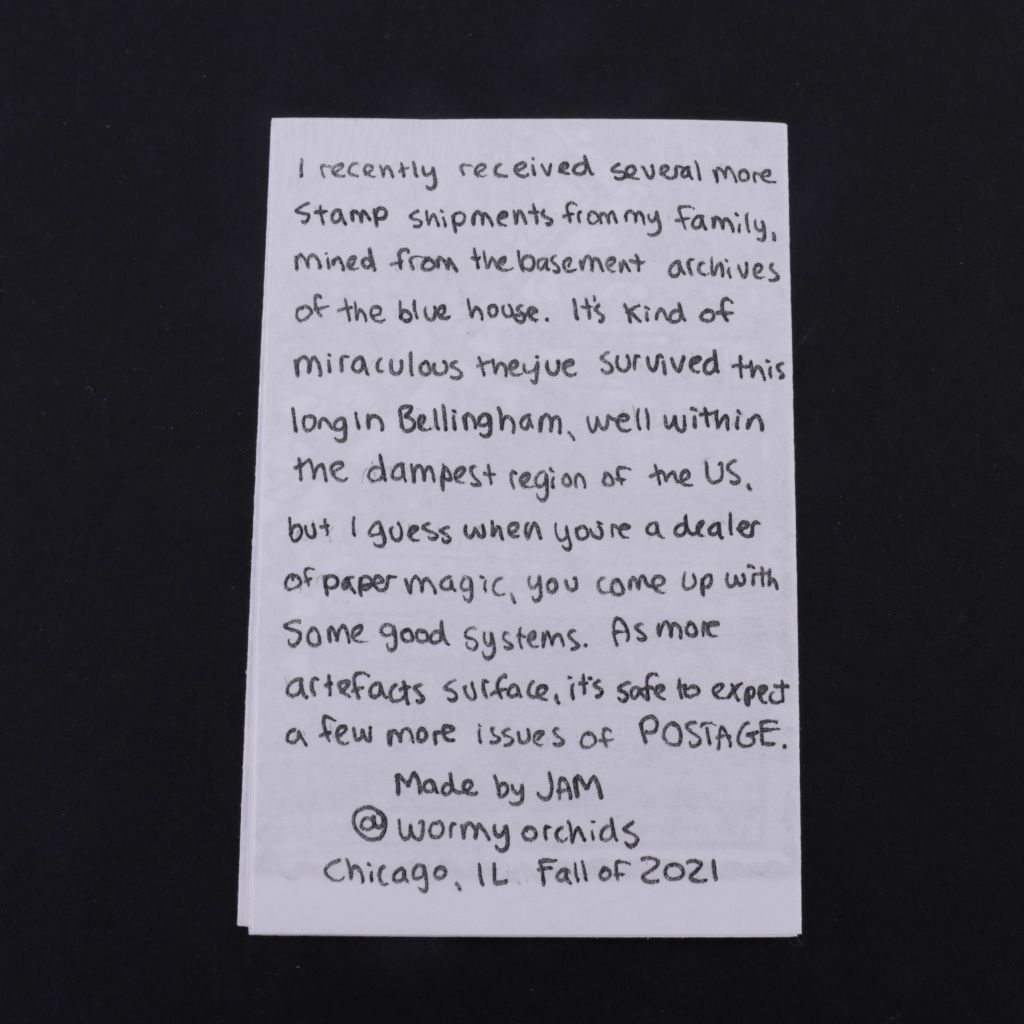 I recently received several more
stamp shipments from my family,
mined from the basement archives
of the blue house. It's kind of
miraculous they've survived this
long in Bellingham, well within
the dampest region of the US,
but I guess when you're a dealer
of paper magic, you come up with
some good systems. As more
artefacts surface, it's safe to expect
a few more issues of POSTAGE.
Made by JAM
@wormyorchids
Chicago, IL Fall of 2021